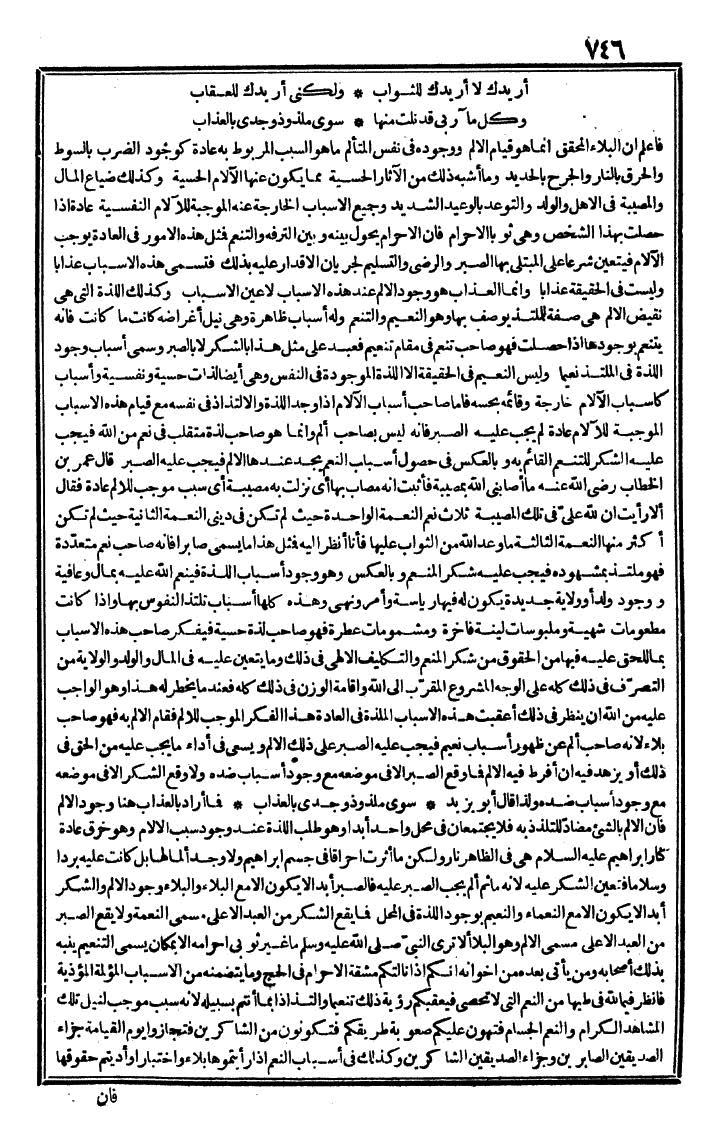 ٧٤٦
أريدك لا أريدك للثواب * ولكني أريدك للعقاب
وكل مآربي قد نلت منها * سوى ملذوذ وجدي بالعذاب
فاعلم ان البلاء المحقق انما هو قيام الالم ووجوده فى نفس المتألم ما هو السبب المربوط به عادة كوجود الضرب بالسوط
والحرق بالنار والجرح بالحديد وما أشبه ذلك من الآثار الحسية مما يكون عنها الآلام الحسية وكذلك ضياع المال
والمصيبة فى الاهل والولد والتوعد بالوعيد الشديد وجميع الاسباب الخارجة عنه الموجبة للآلام النفسية عادة اذا
حصلت بهذا الشخص وهى ثوبا الاحرام فان الاحرام يحول بينه وبين الترفه والتنعم فمثل هذه الامور فى العادة يوجب
الآلام فيتعين شرعا على المبتلى بها الصبر والرضى والتسليم لجريان الاقدار عليه بذلك فتسمى هذه الاسباب عذابا
وليست فى الحقيقة عذابا وانما العذاب هو وجود الالم عند هذه الاسباب لا عين الاسباب وكذلك اللذة التى هى
نقيض الالم هى صفة للملتذ يوصف بها وهو النعيم والتنعم وله أسباب ظاهرة وهى نيل أغراضه كانت ما كانت فانه
يتنعم بوجودها اذا حصلت فهو صاحب تنعم فى مقام تنعيم فعبد على مثل هذا بالشكر لا بالصبر وسمى أسباب وجود
اللذة فى الملتذ نعيما وليس النعيم فى الحقيقة الا اللذة الموجودة فى النفس وهى أيضا لذات حسية ونفسية وأسباب
كاسباب الآلام خارجة وقائمه بحسه فاما صاحب أسباب الآلام اذا وجد اللذة والالتذاذ فى نفسه مع قيام هذه الاسباب
الموجبة للآلام عادة لم يجب عليه الصبر فانه ليس بصاحب ألم وانما هو صاحب لذة متقلب فى نعم من الله فيجب
عليه الشكر للتنعم القائم به وبالعكس فى حصول أسباب النعم يجد عندها الالم فيجب عليه الصبر قال عمر بن
الخطاب رضى الله عنه ما أصابنى الله بمصيبة فأثبت انه مصاب بها أى نزلت به مصيبة أى سبب موجب للالم عادة فقال
ألا رأيت ان لله علىّ فى تلك المصيبة ثلاث نعم النعمة الواحدة حيث لم تكن فى دينى النعمة الثانية حيث لم تكن
أكثر منها النعمة الثالثة ما وعد الله من الثواب عليها فأنا أنظر اليه فمثل هذا ما يسمى صابرا فانه صاحب نعم متعددة
فهو ملتذ بمشهوده فيجب عليه شكر المنعم وبالعكس وهو وجود أسباب اللذة فينعم الله عليه بمال وعافية
ووجود ولد أو ولاية جديدة يكون له فيها رياسة وأمر ونهى وهذه كلها أسباب تلتذ النفوس بها واذا كانت
مطعومات شهية وملبوسات لينة فاخرة ومشمومات عطرة فهو صاحب لذة حسية فيفكر صاحب هذه الاسباب
بما للحق عليه فيها من الحقوق من شكر المنعم والتكليف الالهى فى ذلك وما يتعين عليه فى المال والولد والولاية من
التصرّف فى ذلك كله على الوجه المشروع المقرّب الى الله واقامة الوزن فى ذلك كله فعند ما يخطر له هذا وهو الواجب
عليه من الله ان ينظر فى ذلك أعقبت هذه الاسباب الملذة فى العادة هذا الفكر الموجب للالم فقام الالم به فهو صاحب
بلاء لانه صاحب ألم عن ظهور أسباب نعيم فيجب عليه الصبر على ذلك الالم ويسعى فى أداء ما يجب عليه من الحق فى
ذلك أو يزهد فيه ان أفرط فيه الالم فما وقع الصبر الا فى موضعه مع وجود أسباب ضده ولا وقع الشكر الا فى موضعه
مع وجود أسباب ضده ولذا قال أبو يزيد * سوى ملذوذ وجدى بالعذاب * فما أراد بالعذاب هنا وجود الالم
فان الالم بالشئ مضادّ للتلذذ به فلا يجتمعان فى محل واحد أبدا وهو طلب اللذة عند وجود سبب الالام وهو خرق عادة
كنار ابراهيم عليه السلام هى فى الظاهر نار ولكن ما أثرت احراقا فى جسم ابراهيم ولا وجد ألما لها بل كانت عليه بردا
وسلاما فتعين الشكر عليه لانه ما ثم ألم يجب الصبر عليه فالصبر أبدا لا يكون الا مع البلاء والبلاء وجود الالم والشكر
أبدا لا يكون الا مع النعماء والنعيم بوجود اللذة فى المحل فما يقع الشكر من العبد الا على مسمى النعمة ولا يقع الصبر
من العبد الا على مسمى الالم وهو البلا ألا ترى النبىّ صلى الله عليه وسلم ما غير ثوبى احرامه الا بمكان يسمى التنعيم ينبه
بذلك أصحابه ومن يأتى بعده من اخوانه انكم اذا نالتكم مشقة الاحرام فى الحج وما يتضمنه من الاسباب المؤلمة المؤذية
فانظر فيما لله فى طيها من النعم التى لا تحصى فيعقبكم رؤية ذلك تنعيما والتذاذا بما أنتم بسبيله لانه سبب موجب لنيل تلك
المشاهد الكرام والنعم الجسام فتهون عليكم صعوبة طريقكم فتكونون من الشاكرين فتجازوا يوم القيامة جزاء
الصديقين الصابرين وجزاء الصديقين الشاكرين وكذلك فى أسباب النعم اذا رأيتموها بلاء واختبارا وأديتم حقوقها
فان